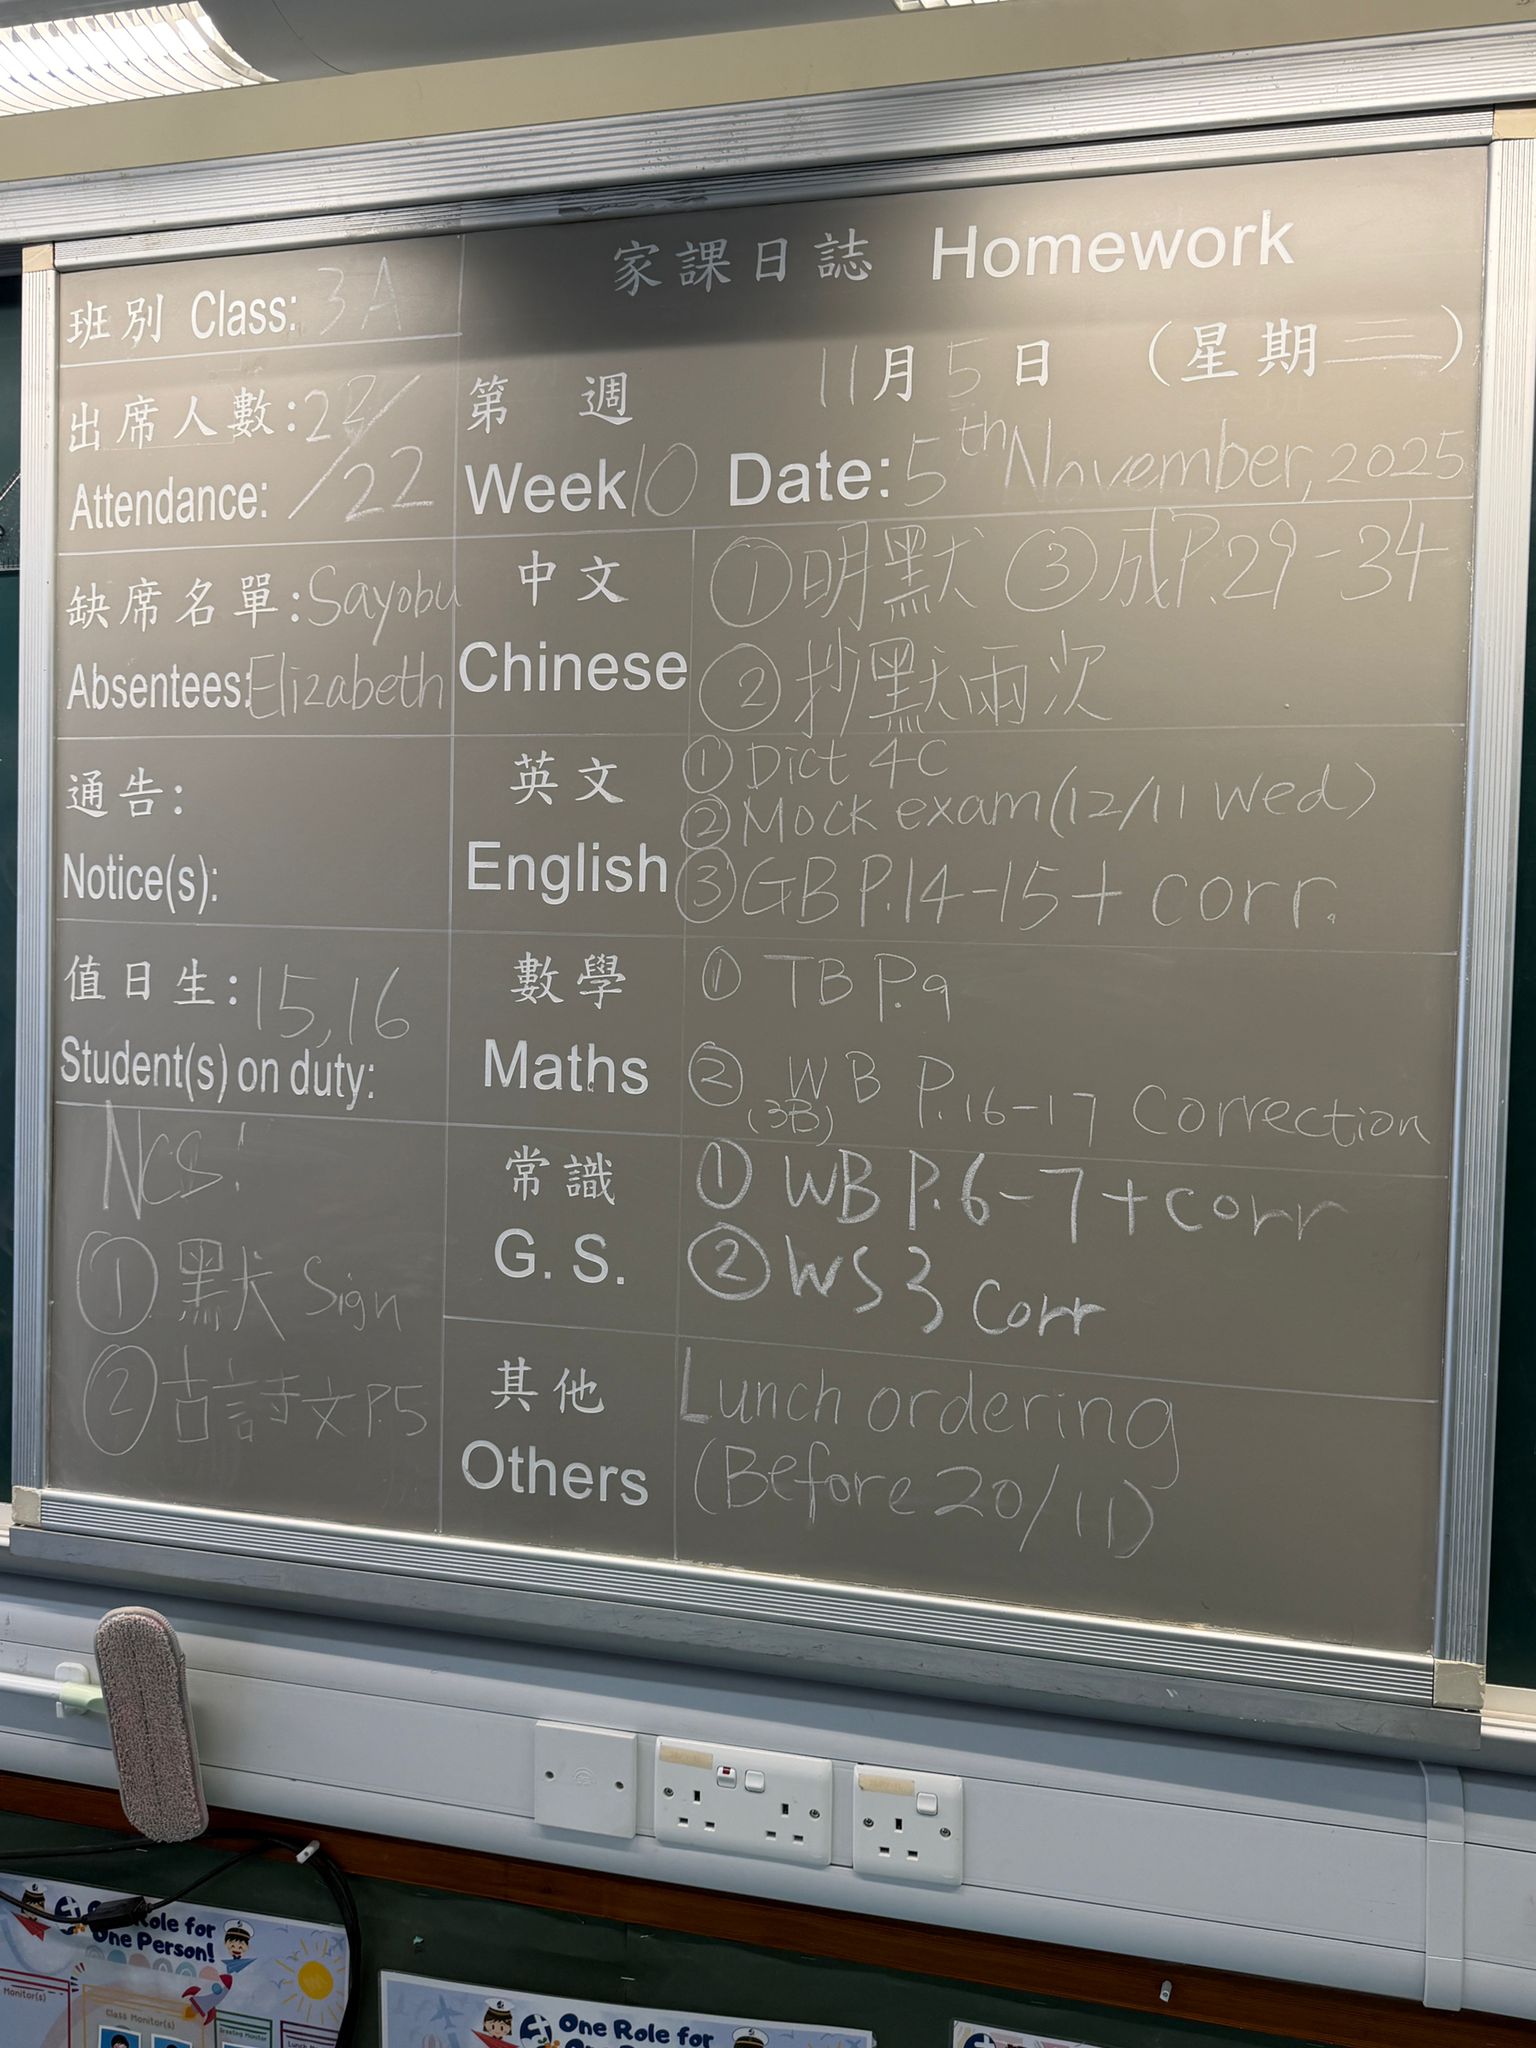 家課日誌 Homework
班別 Class: 3A
11月5日 (星期三)
出席人數: 22/
Attendance: /22
第 週
Week 10 Date: 5th November, 2025
缺席名單: Sayobu
Absentees: Elizabeth
中文
Chinese
①明默 ③成P.29-34
②抄默兩次
通告:
Notice(s):
英文
English
① Dict 4C
② Mock exam (12/11 Wed)
③ GB P.14-15 + corr.
值日生: 15,16
Student(s) on duty:
數學
Maths
① TB P.9
② WB P.16-17 Correction
(3B)
NCS:
① 默 Sign
② 古詩文 P.5
常識
G. S.
① WB P.6-7 + corr
② WS 3 corr
其他
Others
Lunch ordering
(Before 20/11)
One Role for
One Person!
Monitor(s)
Class Monitor(s)
Greeting Monitor
One Role for